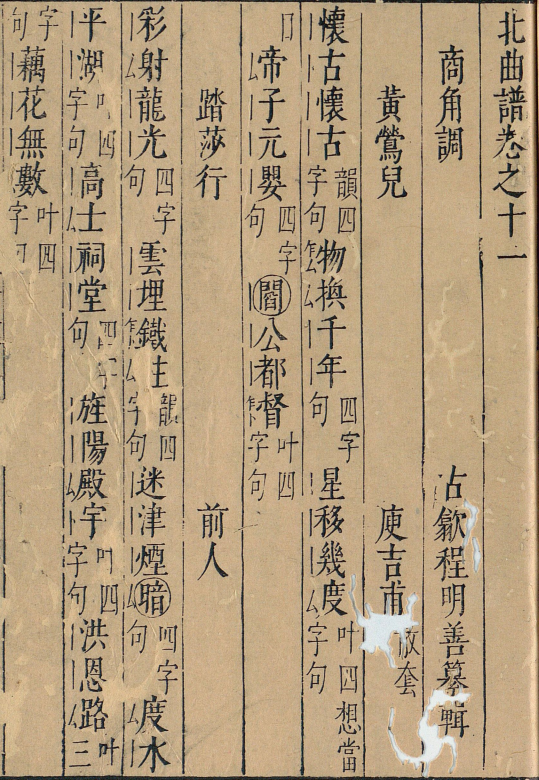 北曲譜卷之十一
商角調　古歙程明善纂輯
黃鶯兒　庾吉甫散套
懷古懷古韻四字句物換千年四字句星移幾度叶四字句想當
日帝子元嬰四字句閻公都督叶四字句
踏莎行　前人
彩射龍光四字句雲埋鐵柱韻四字句迷津煙暗四字句度水
平湖叶四字句高士祠堂四字句旌陽殿宇叶四字句洪恩路叶三
字句藕花無數叶四字句